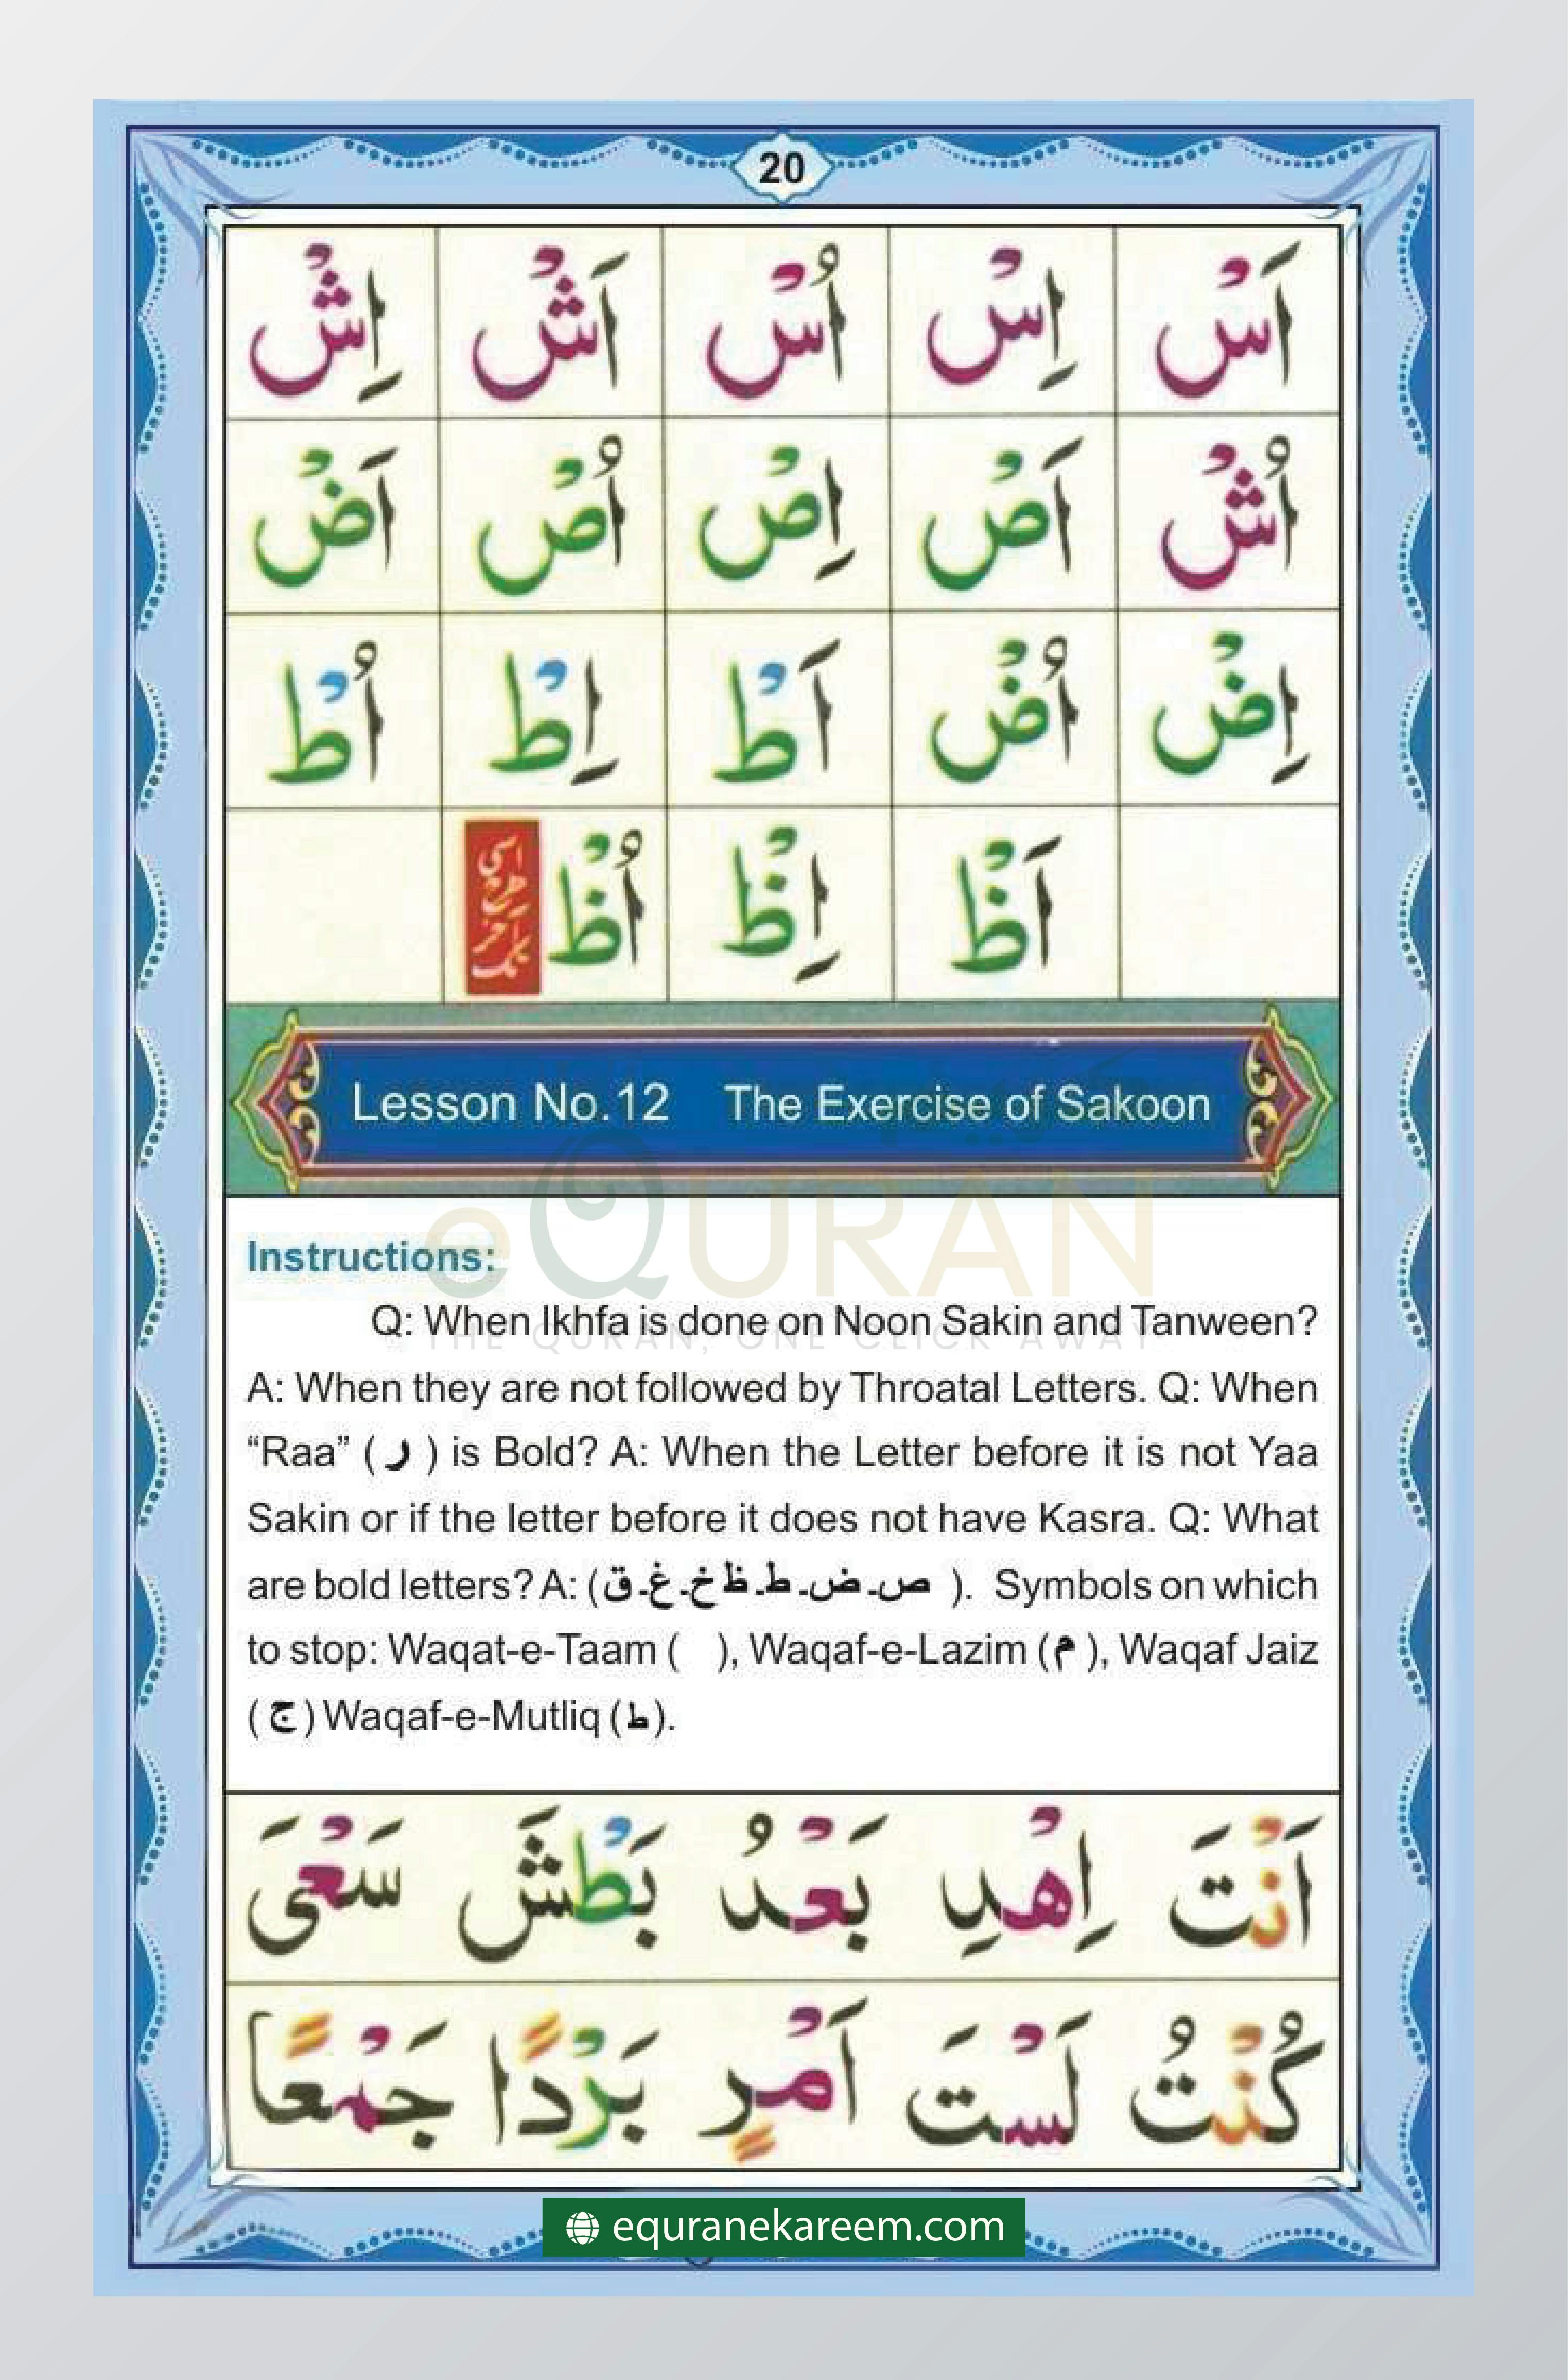 20
اَسْ اِسْ اُسْ اَشْ اِشْ
اُشْ اَصْ اِصْ اُصْ اَضْ
اِضْ اُضْ اَطْ اِطْ اُطْ
اَظْ اِظْ اُظْ
Lesson No.12 The Exercise of Sakoon
eQURAN
THE QURAN, ONE CLICK AWAY
Instructions:
Q: When Ikhfa is done on Noon Sakin and Tanween?
A: When they are not followed by Throatal Letters. Q: When
“Raa” ( ر ) is Bold? A: When the Letter before it is not Yaa
Sakin or if the letter before it does not have Kasra. Q: What
are bold letters? A: ( ص۔ض۔ط۔ظ خ۔غ۔ق ). Symbols on which
to stop: Waqat-e-Taam ( ), Waqaf-e-Lazim ( م ), Waqaf Jaiz
( ج ) Waqaf-e-Mutliq ( ط ).
اَنْتَ اِهْدِ بَعْدُ بَطْشَ سَعْىَ
كُنْتُ لَسْتَ اَمْرٍ بَرْدًا جَمْعًا
equranekareem.com